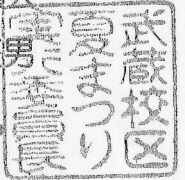 武蔵校区
夏まつり
実行委員長
男